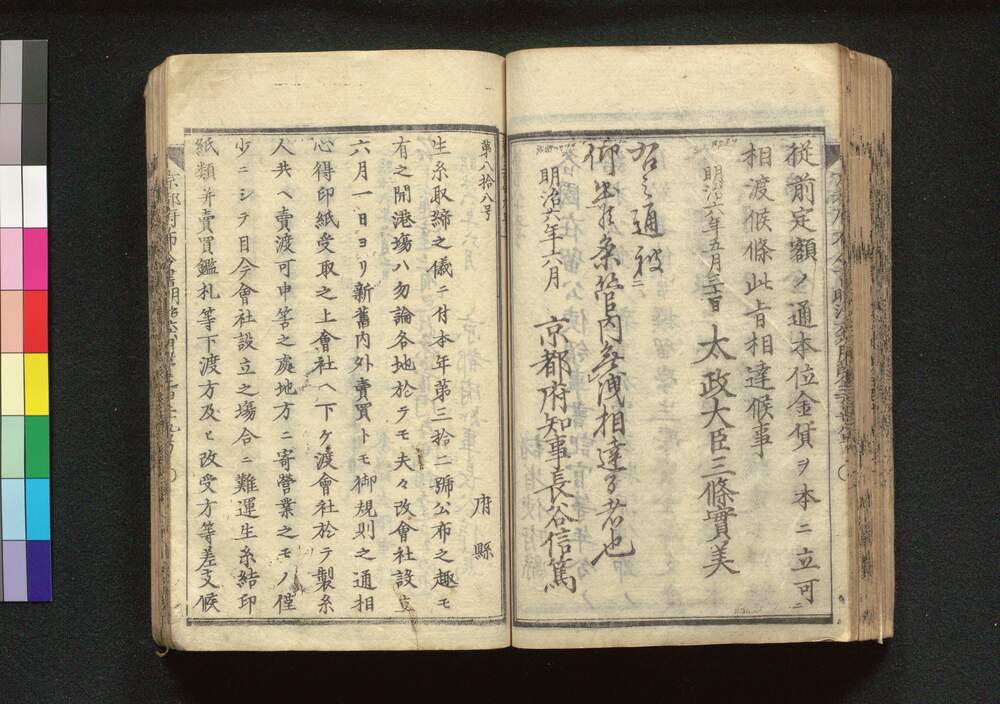 従前定額ノ通本位金貨ヲ本ニ立可
相渡候條此旨相達候事
明治六年五月三十日 太政大臣三條實美
右之通被
仰出候条管内無洩相達る者也
明治六年六月 京都府知事長谷信篤
第八拾八号
府縣
生糸取締之儀ニ付本年第三拾二號公布之趣モ
有之開港場ハ勿論各地於ヲモ夫々改會社設立
六月一日ヨリ新舊内外賣買トモ御規則之通相
心得印紙受取之上會社ヘ下ケ渡會社於テ製糸
人共ヘ賣渡可申筈之處地方ニ寄營業之モノ僅
少ニシテ目今會社設立之場合ニ難運生糸結印
紙類并賣買鑑札等下渡方及ヒ改受方等差支候